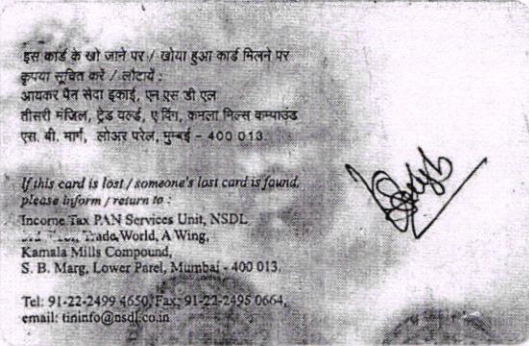 इस कार्ड के खो जाने पर / खोया हुआ कार्ड मिलने पर
कृपया सूचित करें / लौटायें :
आयकर पैन सेवा इकाई, एन एस डी एल
तीसरी मंजिल, ट्रेड वर्ल्ड, ए विंग, कमला मिल्स कम्पाउंड
एस. बी. मार्ग, लोअर परेल, मुम्बई - 400 013.
If this card is lost / someone's lost card is found,
please inform / return to :
Income Tax PAN Services Unit, NSDL
Trade World, A Wing,
Kamala Mills Compound,
S. B. Marg, Lower Parel, Mumbai - 400 013.
Tel: 91-22-2499 4650, Fax: 91-22-2495 0664,
email: tininfo@nsdl.co.in